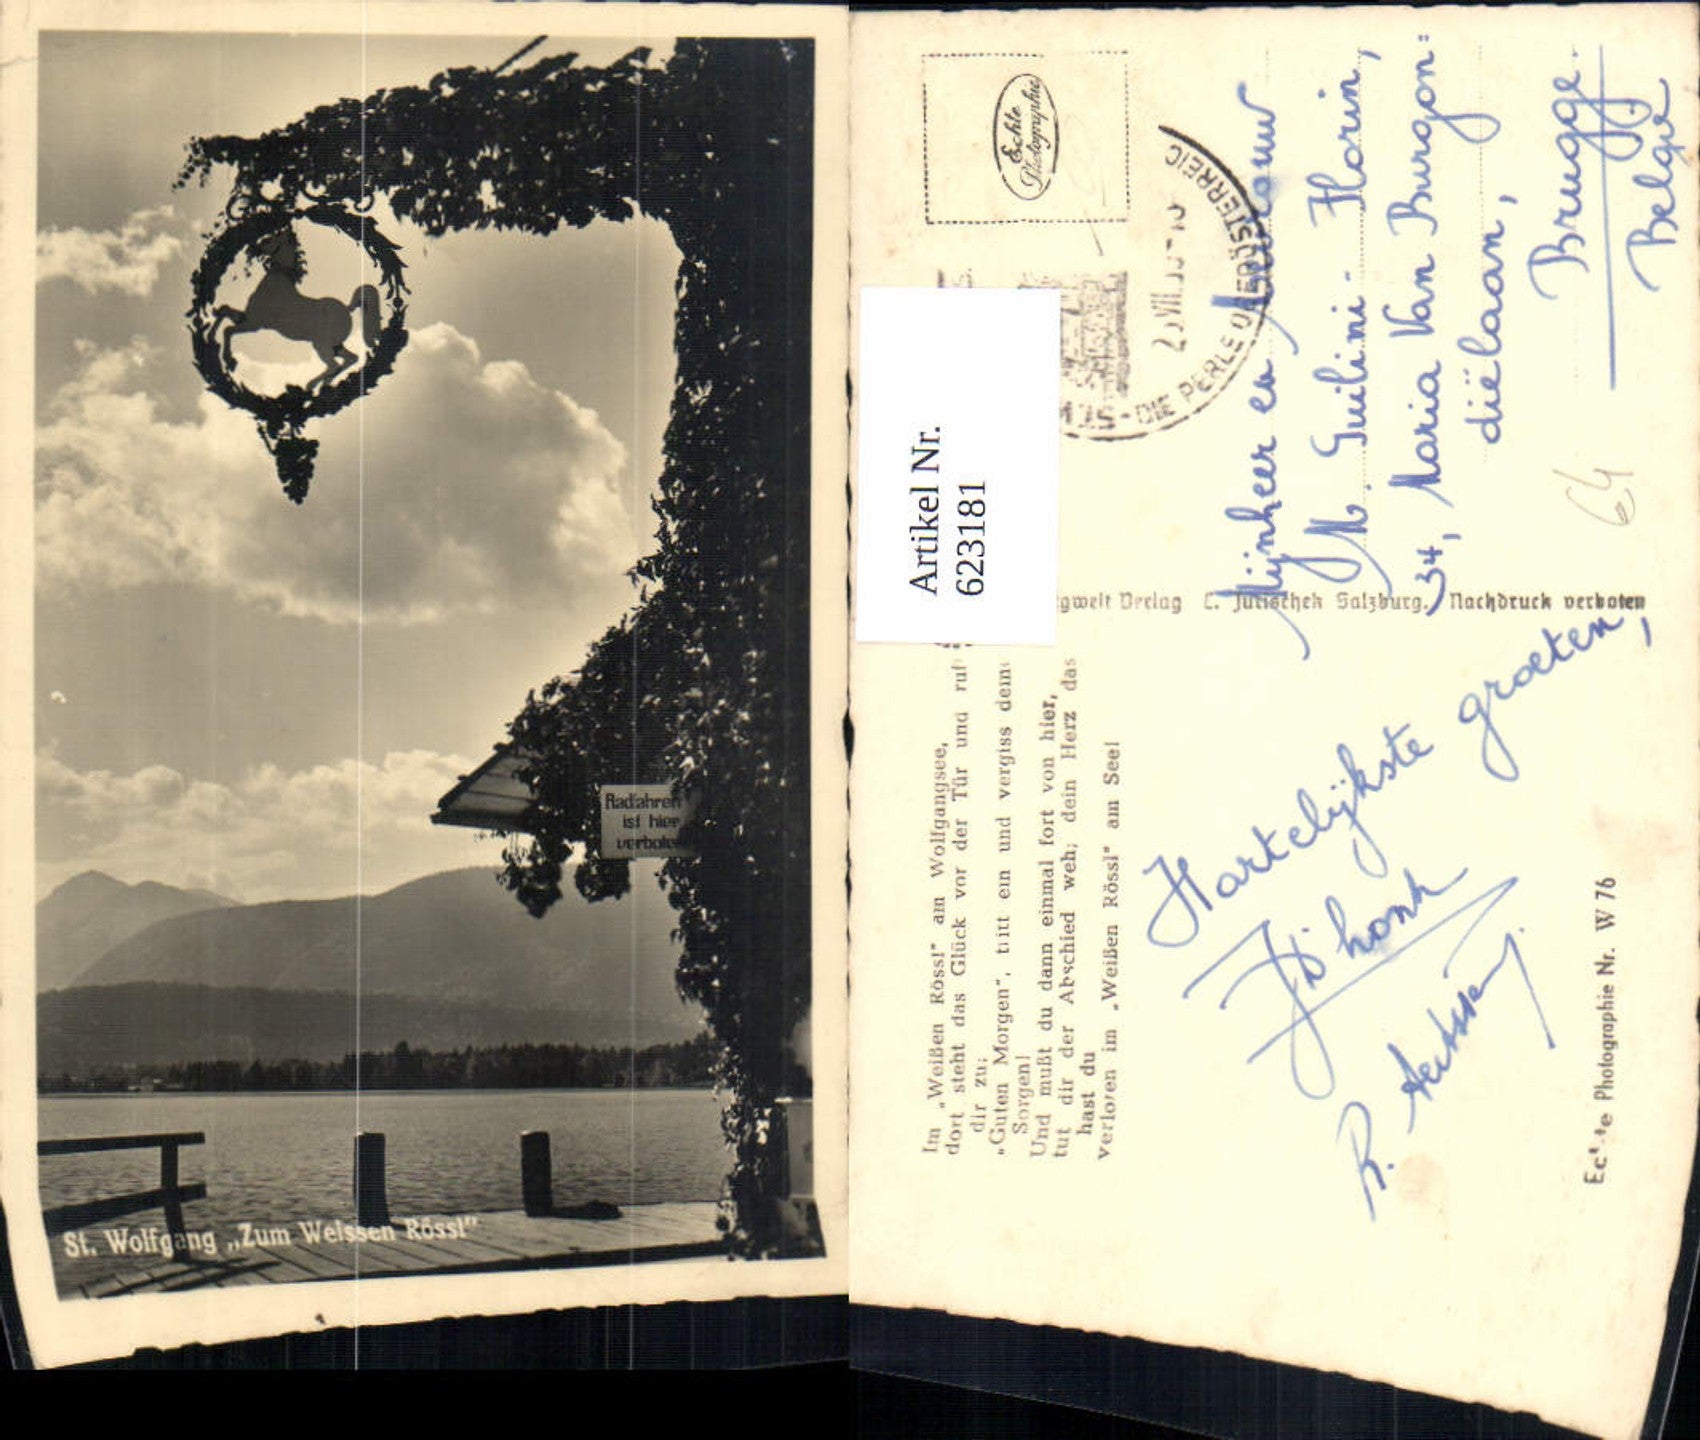 Radfahren
ist hier
verboten
St. Wolfgang „Zum Weissen Rössl"
Echte
Photographie
DIE PERLE OBERÖSTERREIC
Artikel Nr.
623181
Mijnheer en Mevrouw
M. Guilini - Florin,
34, Maria Van Burgon=
diëlaan,
Brugge.
Belgie
64
gwelt Verlag C. Jurischek Salzburg. Nachdruck verboten
Im „Weißen Rössl" am Wolfgangsee,
dort steht das Glück vor der Tür und ruf
dir zu:
„Guten Morgen", tritt ein und vergiss dein
Sorgen!
Und mußt du dann einmal fort von hier,
tut dir der Abschied weh; dein Herz das
hast du
verloren im „Weißen Rössl" am See!
Hartelijkste groeten,
R.
Echte Photographie Nr. W 76